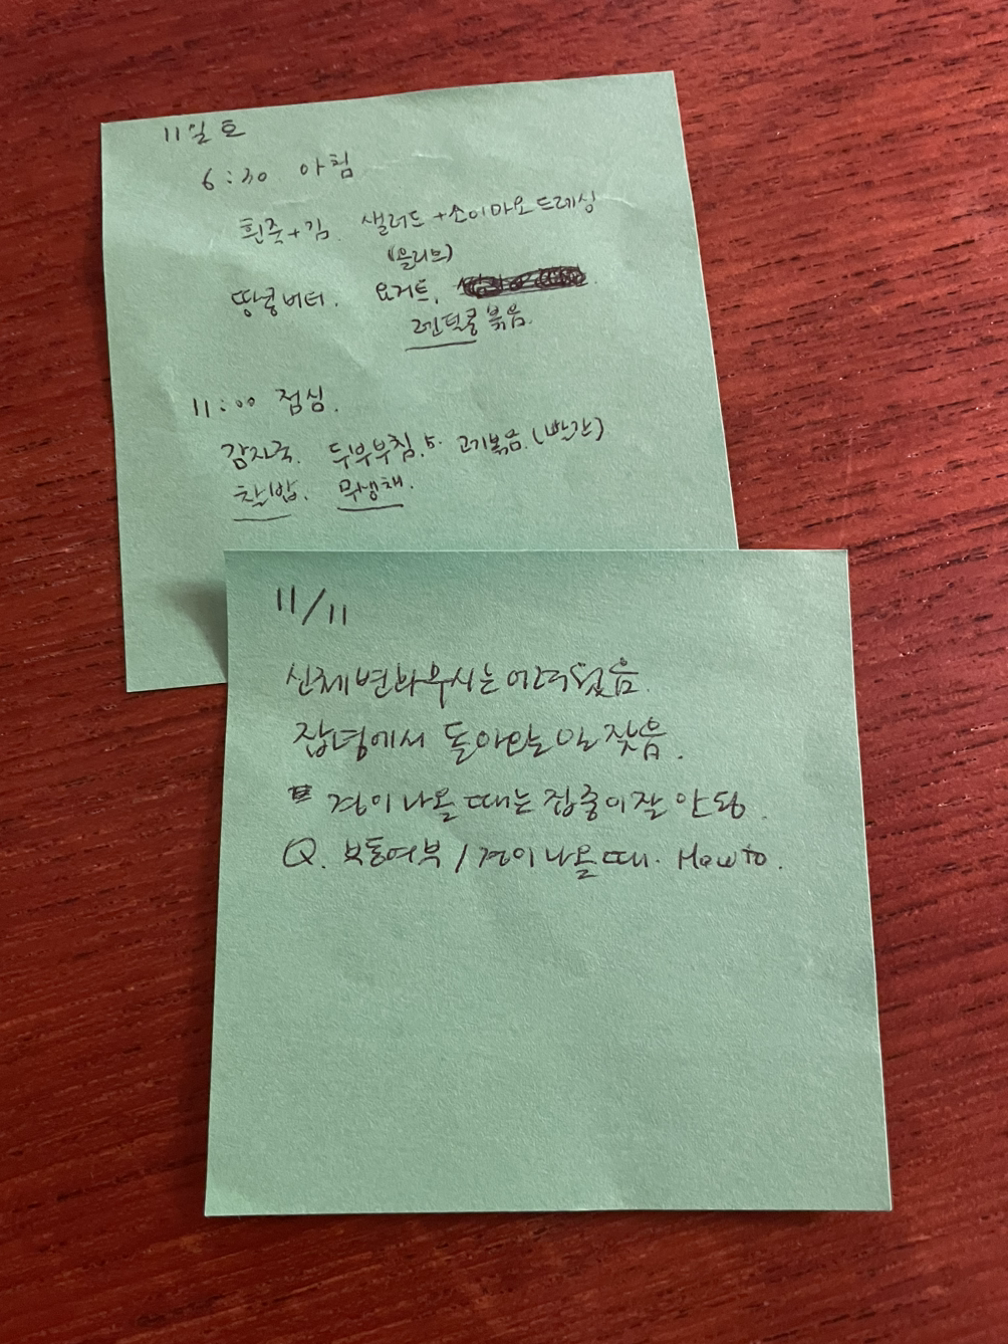 11일 토
6:30 아침
흰죽+김. 샐러드+소이마요드레싱
(올리브)
땅콩버터. 요거트.
렌틸콩볶음.
11:00 점심.
감자국. 두부부침. 고기볶음.(빨간)
찰밥. 무생채.
11/11
신체변화무시는 어려웠음.
잡념에서 돌아오는 일 잦음.
경이 나올 때는 집중이 잘 안됨.
Q. 보통여부 / 경이 나올 때. How to.